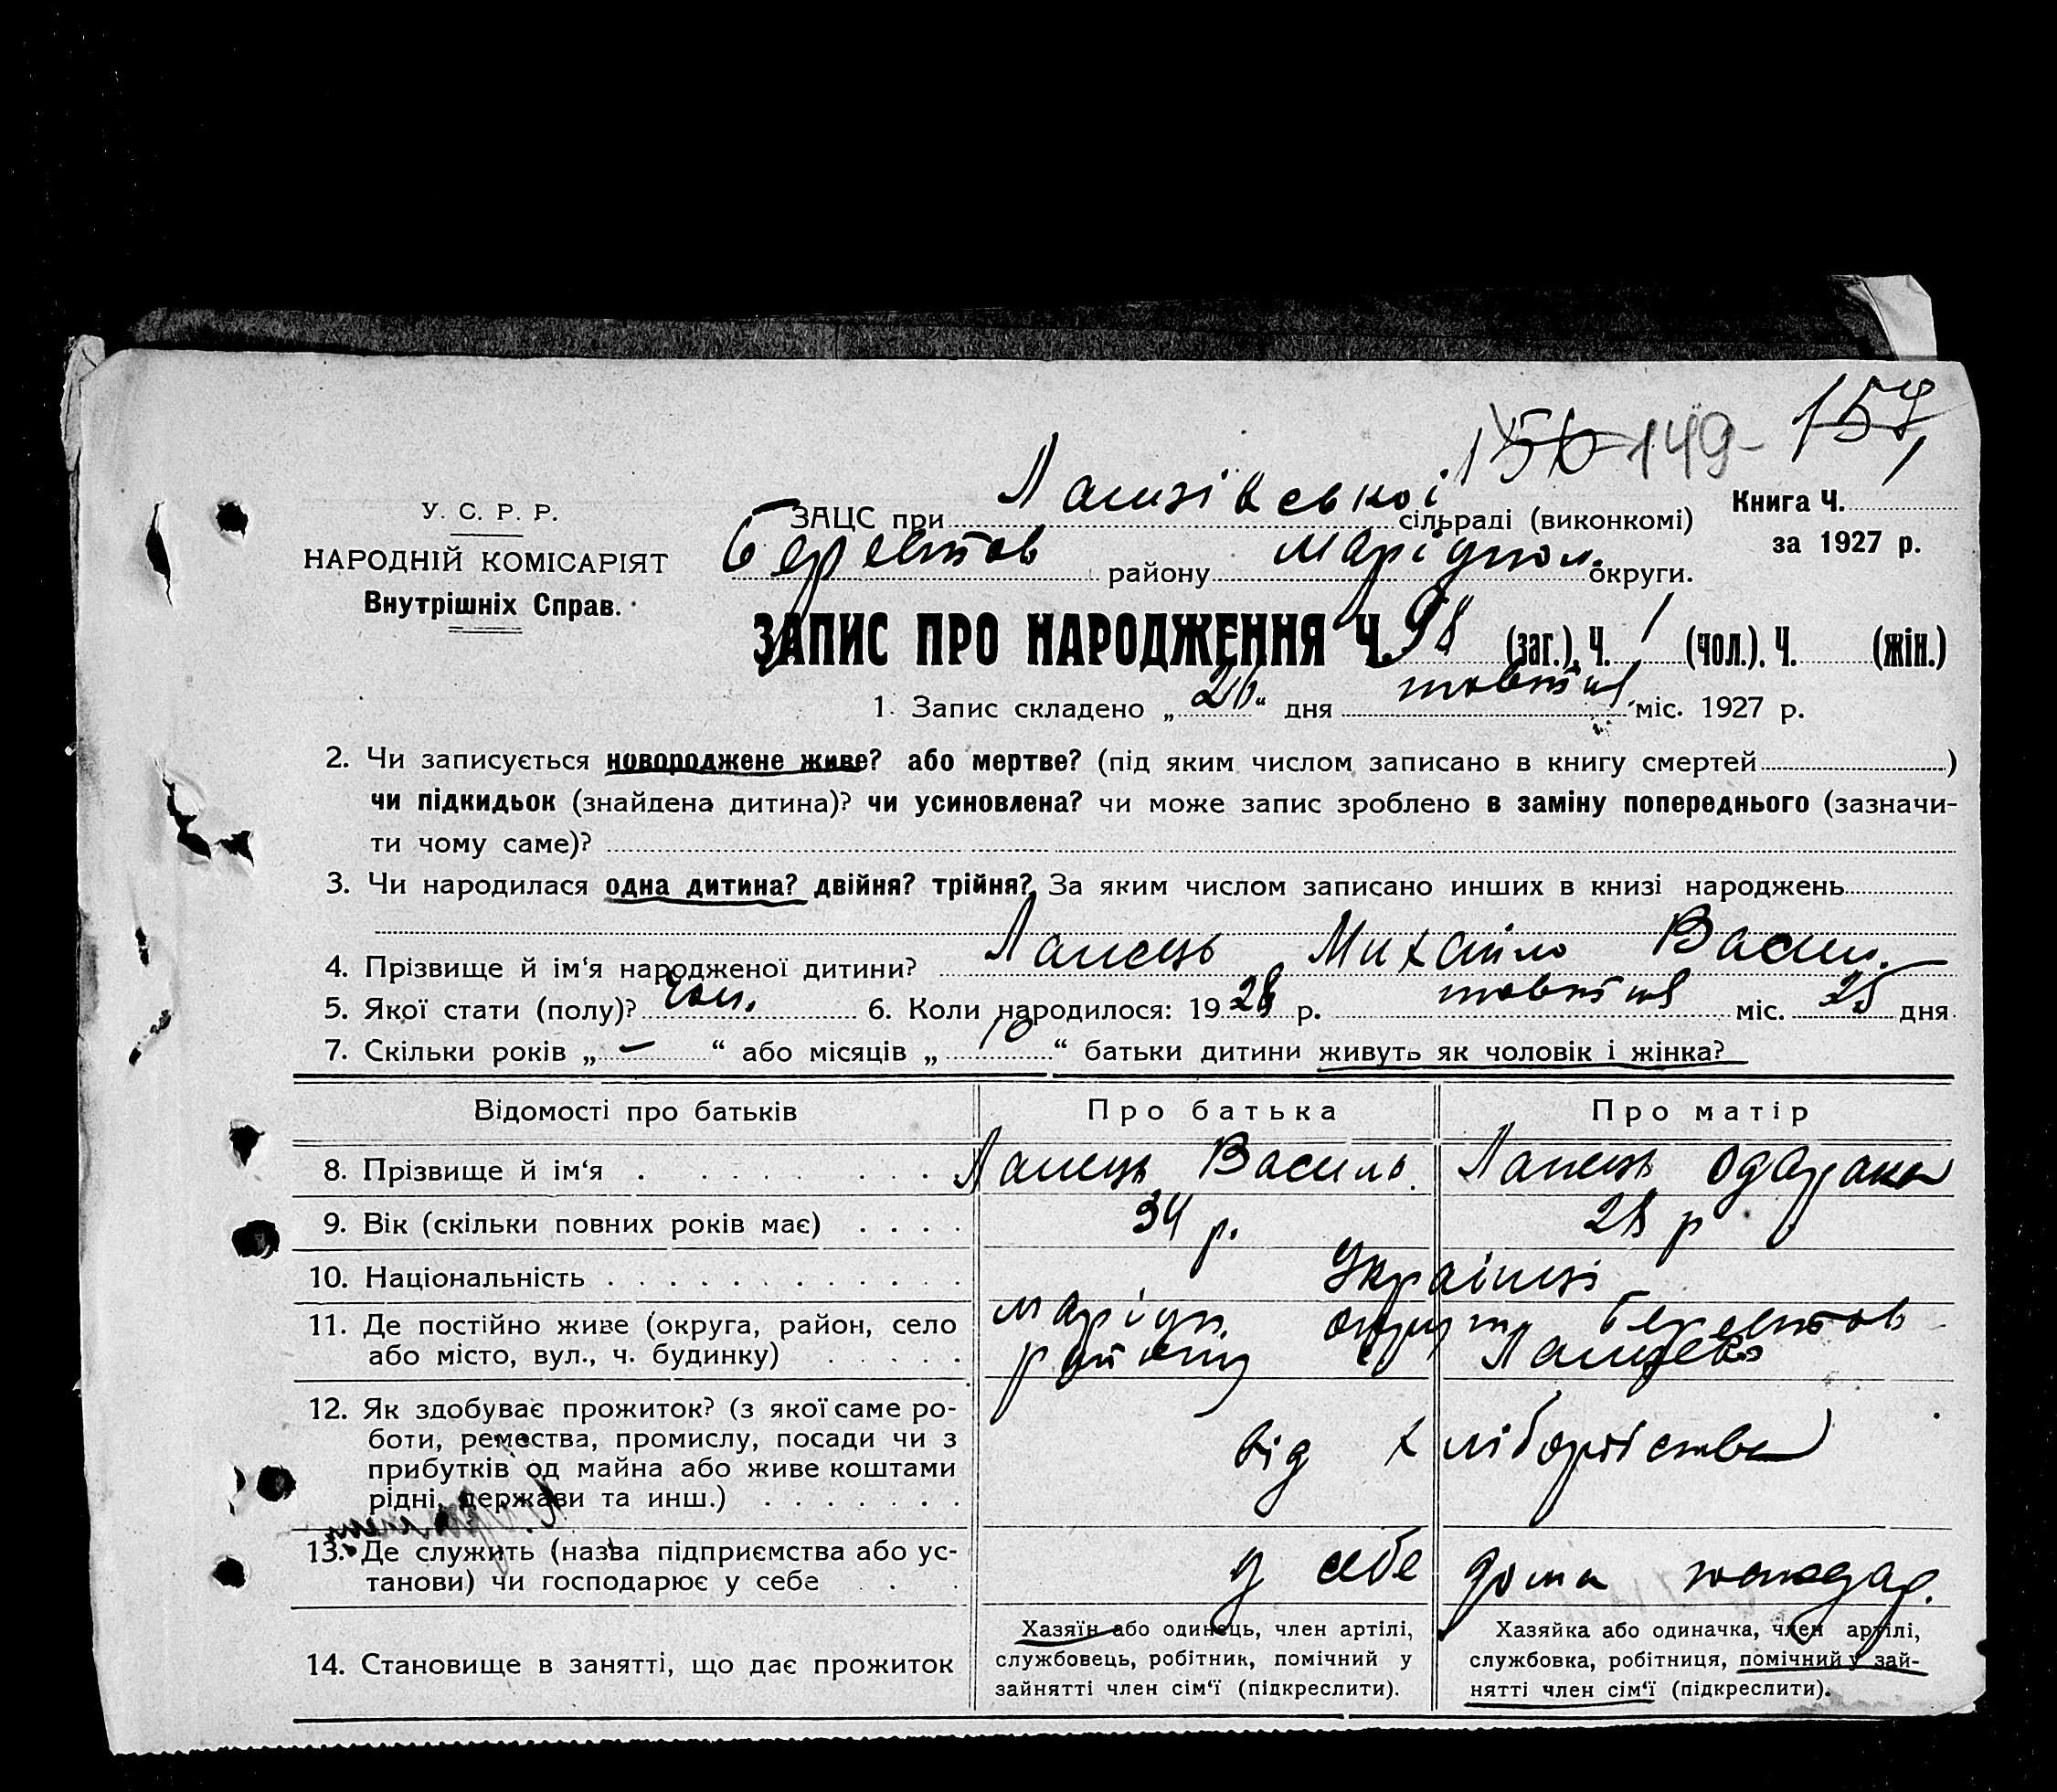 150 149- 157
У. С. Р. Р.
НАРОДНІЙ КОМІСАРІЯТ
Внутрішніх Справ.
ЗАЦС при сільраді (виконкомі)
Книга Ч. 1
за 1927 р.
Берестов району Маріупол. округи.
ЗАПИС ПРО НАРОДЖЕННЯ Ч. 98 (заг.), Ч. 1 (чол.). Ч. (жін.)
1. Запис складено „ 26 “ дня жовтня міс. 1927 р.
2. Чи записується новороджене живе? або мертве? (під яким числом записано в книгу смертей )
чи підкидьок (знайдена дитина)? чи усиновлена? чи може запис зроблено в заміну попереднього (зазначи-
ти чому саме)?
3. Чи народилася одна дитина? двійня? трійня? За яким числом записано инших в книзі народжень
4. Прізвище й ім‘я народженої дитини? Михайло Васил.
5. Якої стати (полу)? чол. 6. Коли народилося: 19 р. жовтня міс. 25 дня
7. Скільки років „ – “ або місяців „ 10 “ батьки дитини живуть як чоловік і жінка?
Відомості про батьків Про батька Про матір
8. Прізвище й ім‘я Василь Одарка
9. Вік (скільки повних років має) 34 р. 28 р
10. Національність Українці
11. Де постійно живе (округа, район, село Маріуп. округи Берестов
або місто, вул., ч. будинку) району
12. Як здобуває прожиток? (з якої саме ро-
боти, ремества, промислу, посади чи з від хліборобства
прибутків од майна або живе коштами
рідні, держави та инш.)
13. Де служить (назва підприємства або ус- у себе дома
танови) чи господарює у себе
14. Становище в занятті, що дає прожиток
Хазяїн або одинець, член артілі,
службовець, робітник, помічний у
зайнятті член сім‘ї (підкреслити).
Хазяйка або одиначка, член артілі,
службовка, робітниця, помічний у зай-
нятті член сім‘ї (підкреслити).